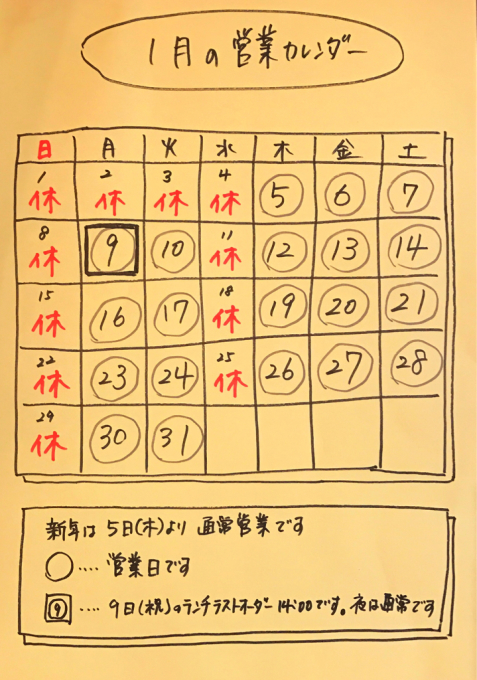 1月の営業カレンダー
日 月 火 水 木 金 土
1 2 3 4
休 休 休 休 5 6 7
8 11
休 9 10 休 12 13 14
15 18
休 16 17 休 19 20 21
22 25
休 23 24 休 26 27 28
29
休 30 31
新年は 5日(木)より 通常営業です
○‥‥ 営業日です
⑨ ‥‥ 9日(祝)のランチラストオーダー14:00です。夜は通常です